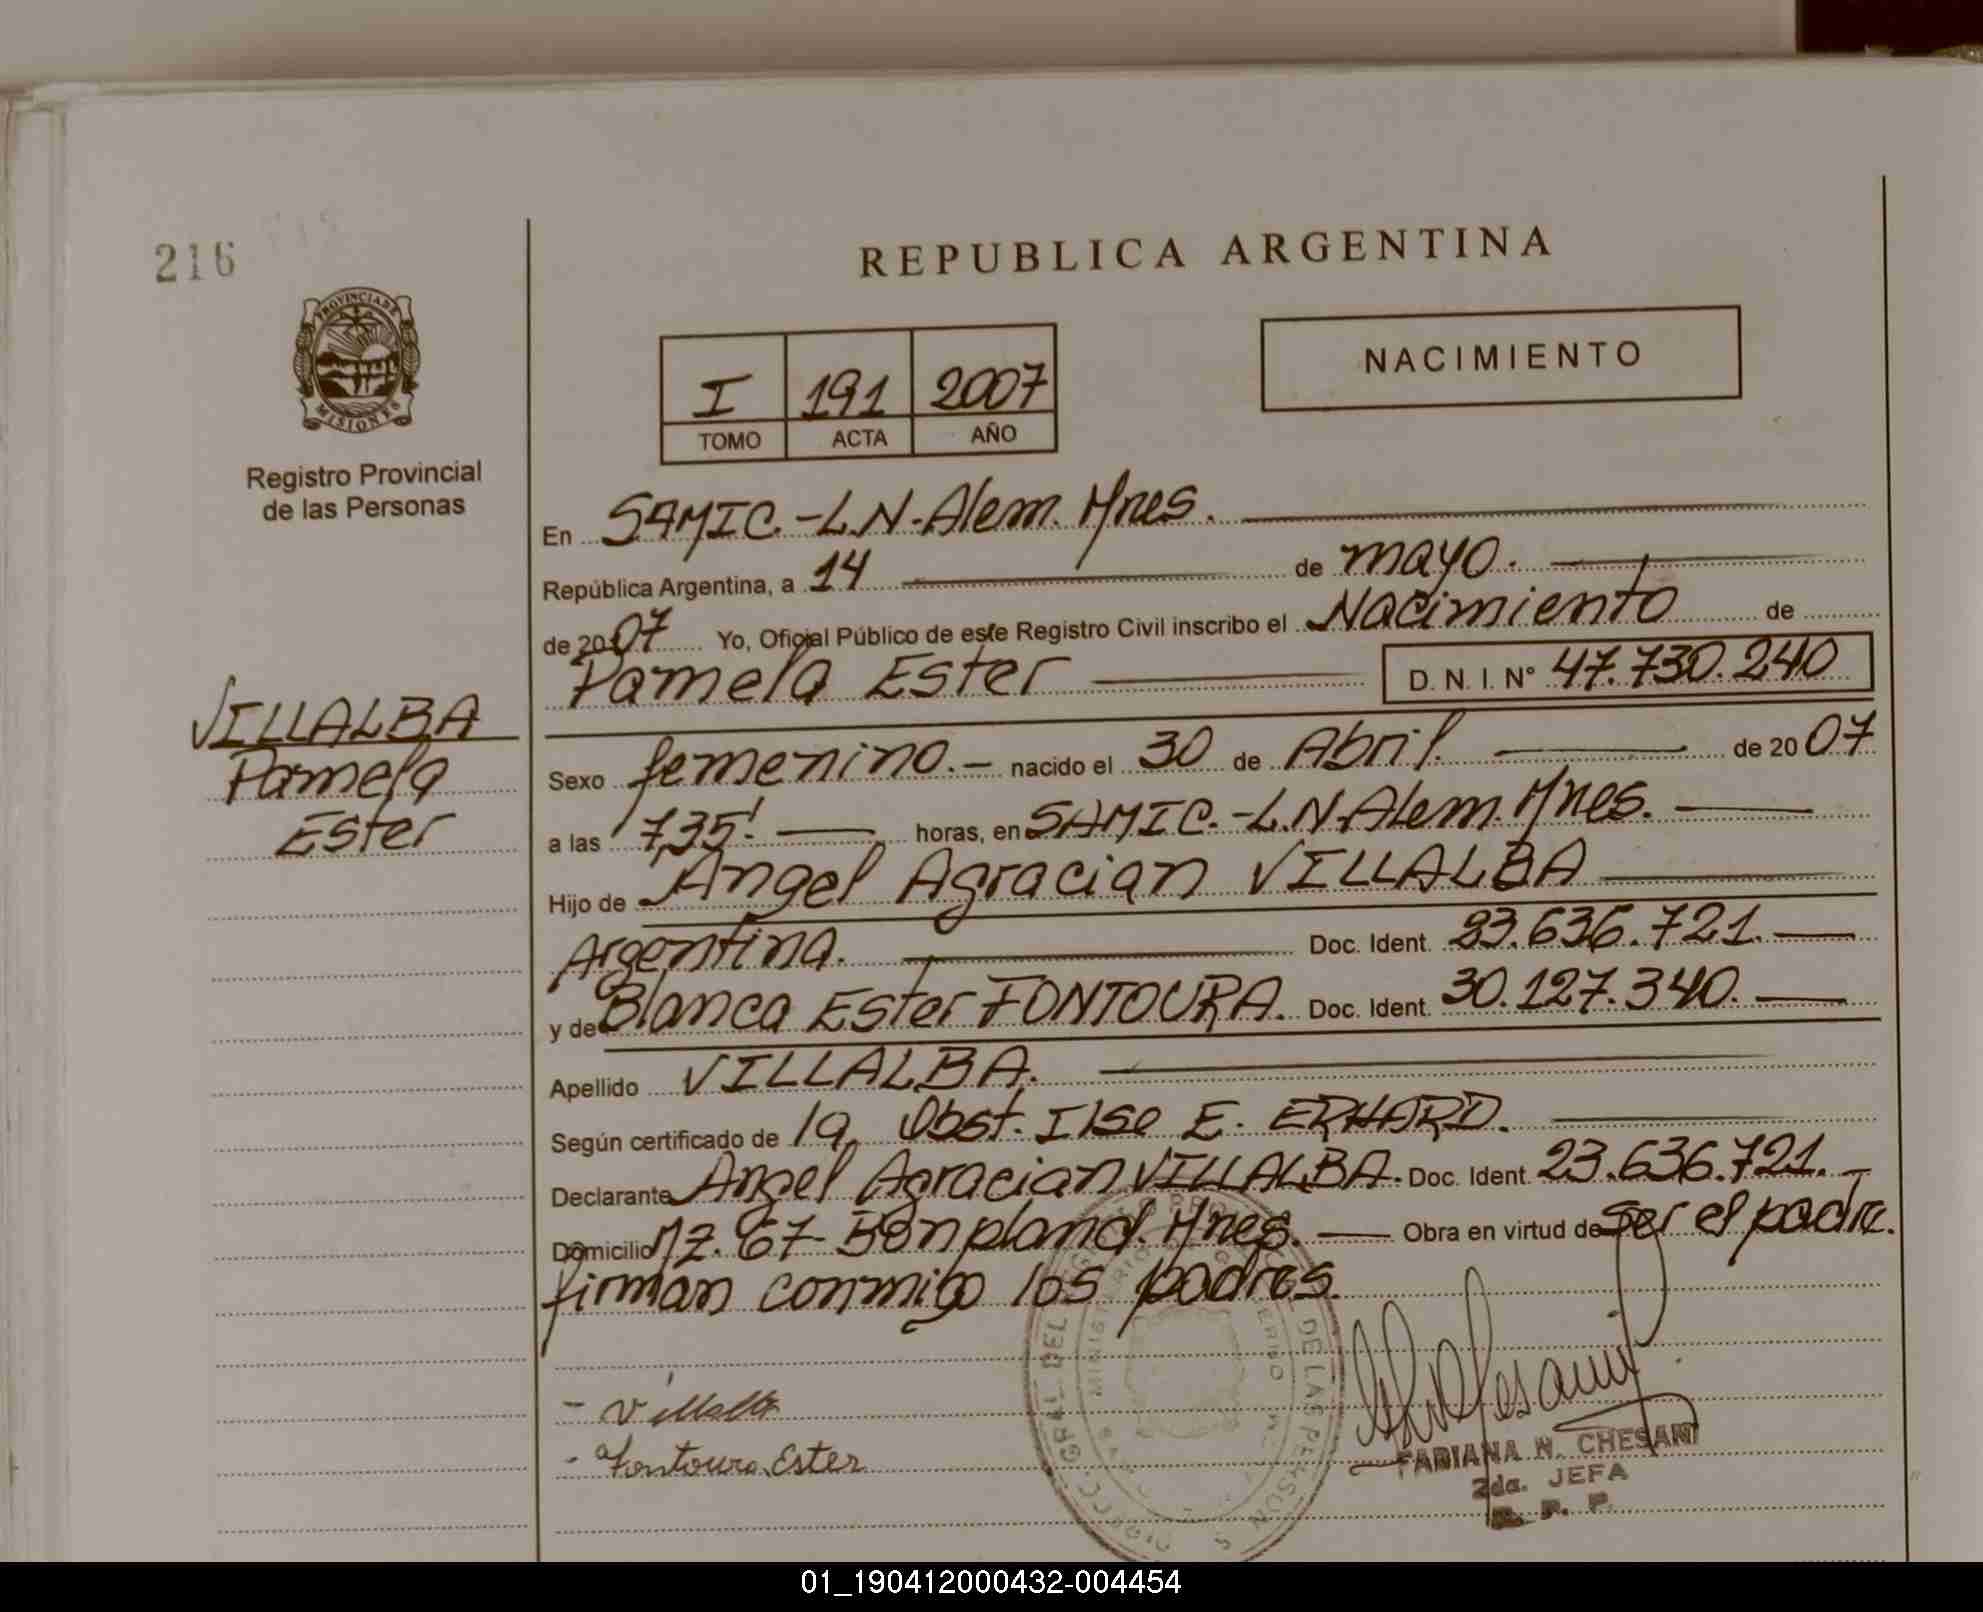 216
REPUBLICA ARGENTINA
PROVINCIA DE
MISIONES
Registro Provincial
de las Personas
I 191 2007
TOMO ACTA AÑO
NACIMIENTO
En SAMIC.-L.N-Alem. Mnes.
República Argentina, a 14 de mayo.
de 2007 Yo, Oficial Público de este Registro Civil inscribo el Nacimiento de
Pamela Ester D. N. I. Nº 47.730.240
VILLALBA
Pamela
Ester
Sexo femenino.- nacido el 30 de Abril. de 2007
a las 7,35'. horas, en SAMIC.-L.N-Alem. Mnes.
Hijo de Angel Agracian VILLALBA
Argentina. Doc. Ident. 23.636.721.
y de Blanca Ester FONTOURA. Doc. Ident. 30.127.340.
Apellido VILLALBA.
Según certificado de la Obst. Ilse E. ERHARD.
Declarante Angel Agracian VILLALBA. Doc. Ident. 23.636.721.
Domicilio Mz. 67- Bonpland. Mnes. Obra en virtud de ser el padre.
firman conmigo los padres.
- Villalba
- Fontoura Ester
DE LAS PERSONAS
FABIANA N. CHESANI
2da. JEFA
R. P. P.
01_190412000432-004454